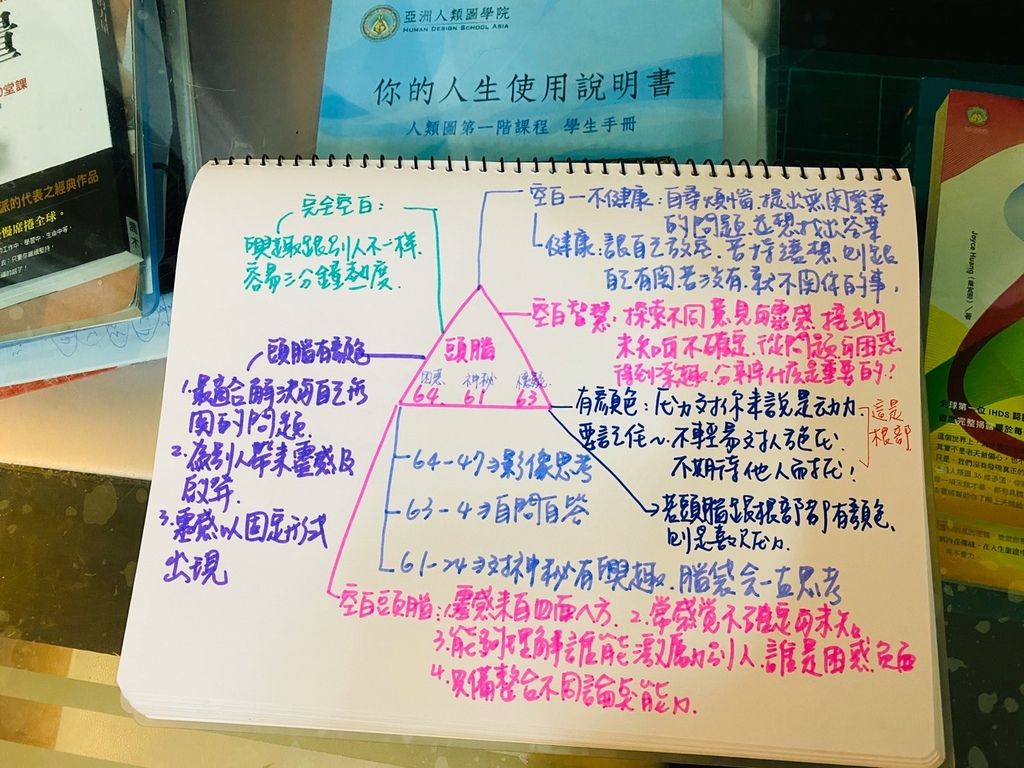 亞洲人類圖學院
HUMAN DESIGN SCHOOL ASIA
你的人生使用說明書
人類圖第一階課程 學生手冊
堂課
派的代表之經典作品
慢席捲全球。
Joyce Huang
全球第一位 IHDS 認
完全空白:
興趣跟別人不一樣.
容易三分鐘熱度.
空白—不健康:自尋煩惱,提出無關緊要
的問題並想找出答案
健康:跟自己放空.若持續想,則跟
自己有關若沒有.就不關你的事,
空白智慧:探索不同意見與靈感,接納
未知與不確定.從問題與困惑
得到樂趣.分辨什麼是重要的!
頭腦
困惑 神秘 懷疑
64. 61 63
頭腦有顏色
1.最適合解決與自己所
關的問題.
2.為別人帶來靈感及
啟發.
3.靈感以固定形式
出現
有顏色:压力对你来說是动力
要記住~不輕易对人施压
不期待他人而压!
這是
根部
若頭腦跟根部都有顏色,
則是喜欢压力.
64-47→影像思考
63-4→自問自答
61-24→对神秘有興趣.腦袋会一直思考
空白頭腦:1.靈感来自四面八方. 2.常感觉不確定與未知.
3.能夠理解誰能激勵別人.誰是困惑負面
4.具備整合不同論奌能力.